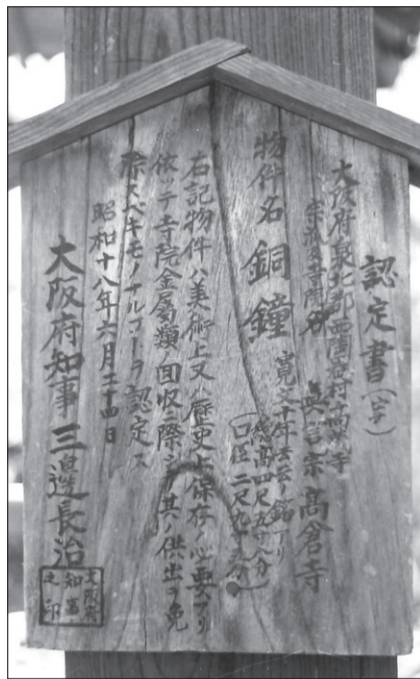 認定書(写)
大阪府泉北郡西陶器村高蔵寺
宗派及寺院名 真言宗 高倉寺
物件名 銅鐘 寛文十年 銘アリ
総高四尺五寸八分
口径二尺九寸五分
右記物件ハ美術上又ハ歴史上保存ノ必要アリ
依ッテ寺院金属類ノ回収ニ際シテ其ノ供出ヲ免
除スベキモノナルコトヲ認定ス
昭和十八年六月二十四日
大阪府知事 三邊長治
大阪府
知事
之印